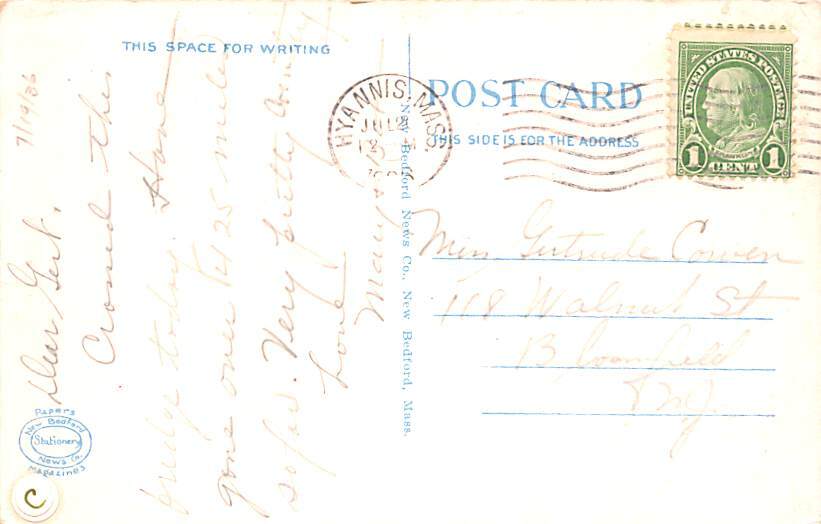 THIS SPACE FOR WRITING
7/19/26
Dear Gert,
Crossed this
bridge today. Have
gone over 125 miles
so far. Very pretty country
Love
Mary
POST CARD
THIS SIDE IS FOR THE ADDRESS
HYANNIS, MASS.
JUL
UNITED STATES POSTAGE
1 CENT 1
New Bedford News Co., New Bedford, Mass.
Miss Gertrude Cowen
118 Walnut St
Bloomfield
N.J.
PAPERS
New Bedford
Stationery
News Co.
MAGAZINES
C